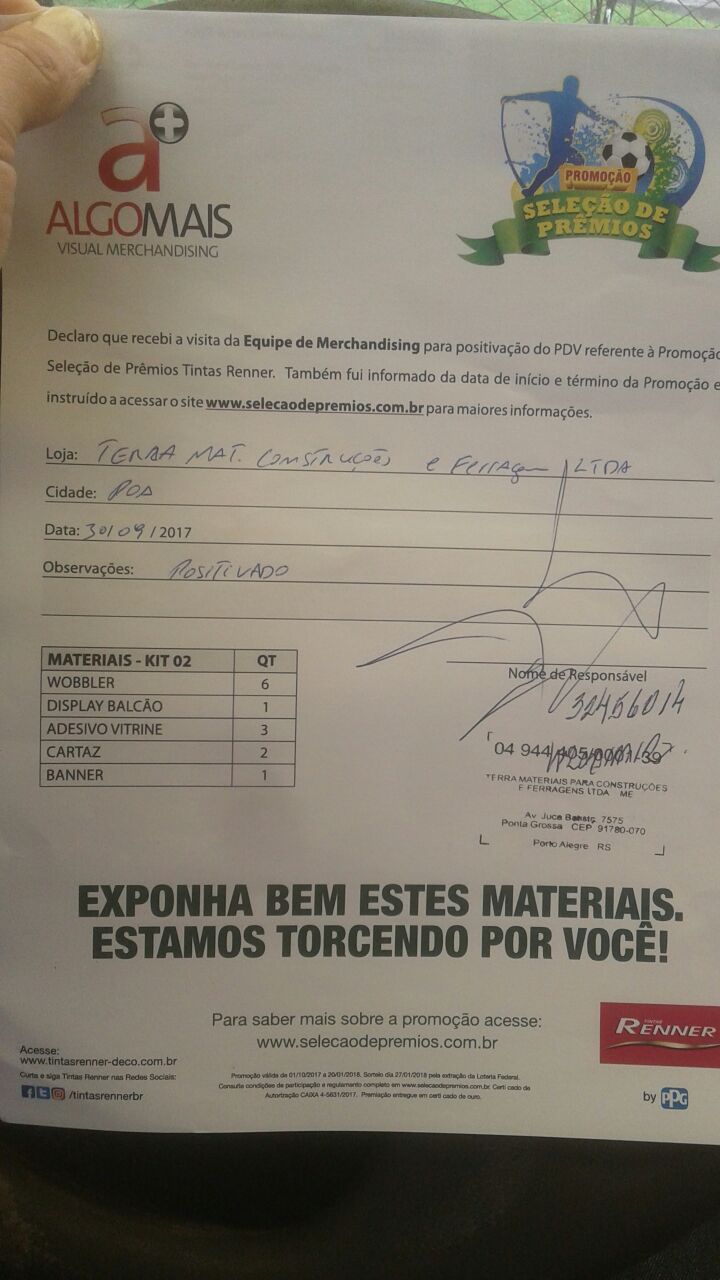 a+
ALGOMAIS
VISUAL MERCHANDISING
PROMOÇÃO
SELEÇÃO DE
PRÊMIOS
Declaro que recebi a visita da Equipe de Merchandising para positivação do PDV referente à Promoção
Seleção de Prêmios Tintas Renner. Também fui informado da data de início e término da Promoção e
instruído a acessar o site www.selecaodepremios.com.br para maiores informações.
Loja: TERRA MAT. CONSTRUÇÕES e Ferragem LTDA
Cidade: POA
Data: 30/09/2017
Observações: POSITIVADO
MATERIAIS - KIT 02 QT
WOBBLER 6
DISPLAY BALCÃO 1
ADESIVO VITRINE 3
CARTAZ 2
BANNER 1
Nome de Responsável
32456014
04 944 405/0001-39
TERRA MATERIAIS PARA CONSTRUÇÕES
E FERRAGENS LTDA ME
Av Juca Batista, 7575
Ponta Grossa CEP 91780-070
Porto Alegre RS
EXPONHA BEM ESTES MATERIAIS.
ESTAMOS TORCENDO POR VOCÊ!
Para saber mais sobre a promoção acesse:
www.selecaodepremios.com.br
TINTAS
RENNER
by PPG
Acesse:
www.tintasrenner-deco.com.br
Curta e siga Tintas Renner nas Redes Sociais:
/tintasrennerbr
Promoção válida de 01/10/2017 a 20/01/2018. Sorteio dia 27/01/2018 pela extração da Loteria Federal.
Consulte condições de participação e regulamento completo em www.selecaodepremios.com.br. Certi cado de
Autorização CAIXA 4-5631/2017. Premiação entregue em certi cado de ouro.